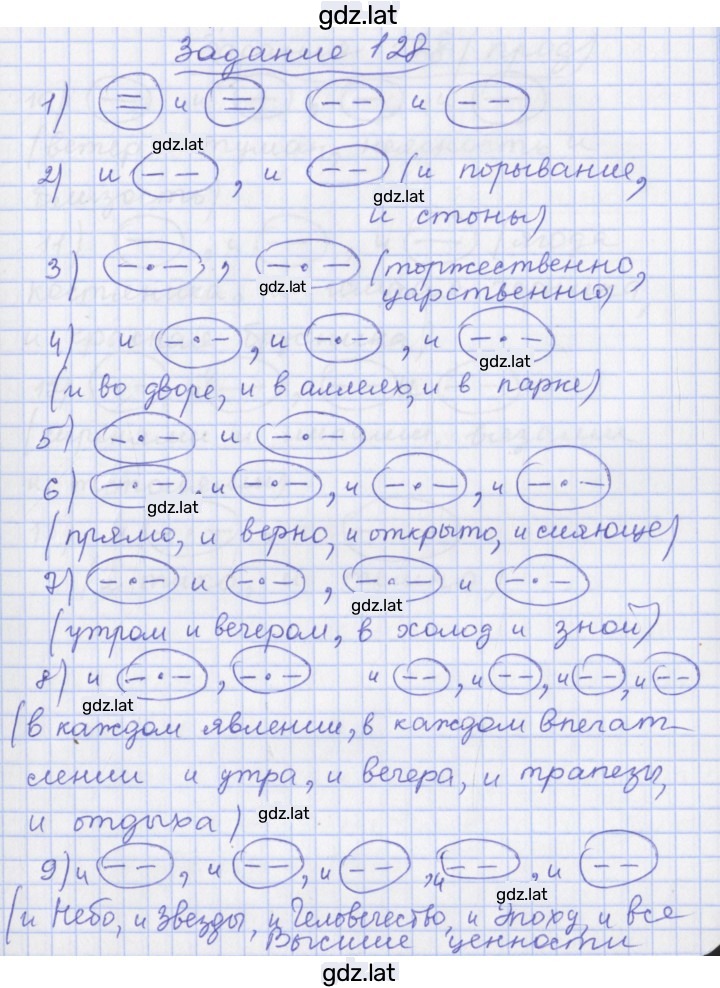 gdz.lat
Задание 128
1) и и
gdz.lat
2) и , и (и порывание,
gdz.lat
и стоны)
3) , (торжественно,
gdz.lat
царственно)
4) и , и , и
gdz.lat
(и во дворе, и в аллеях, и в парке)
5) и
6) , и , и , и
gdz.lat
(прямо, и верно, и открыто, и сияюще)
7) и , и
gdz.lat
(утром и вечером, в холод и зной)
8) и , и , и , и , и
gdz.lat
(в каждом явлении, в каждом впечат-
лении и утра, и вечера, и трапезы,
и отдыха)
gdz.lat
9) и , и , и , и , и
gdz.lat
(и Небо, и Звезды, и Человечество, и Эпоху, и все
Высшие ценности
gdz.lat